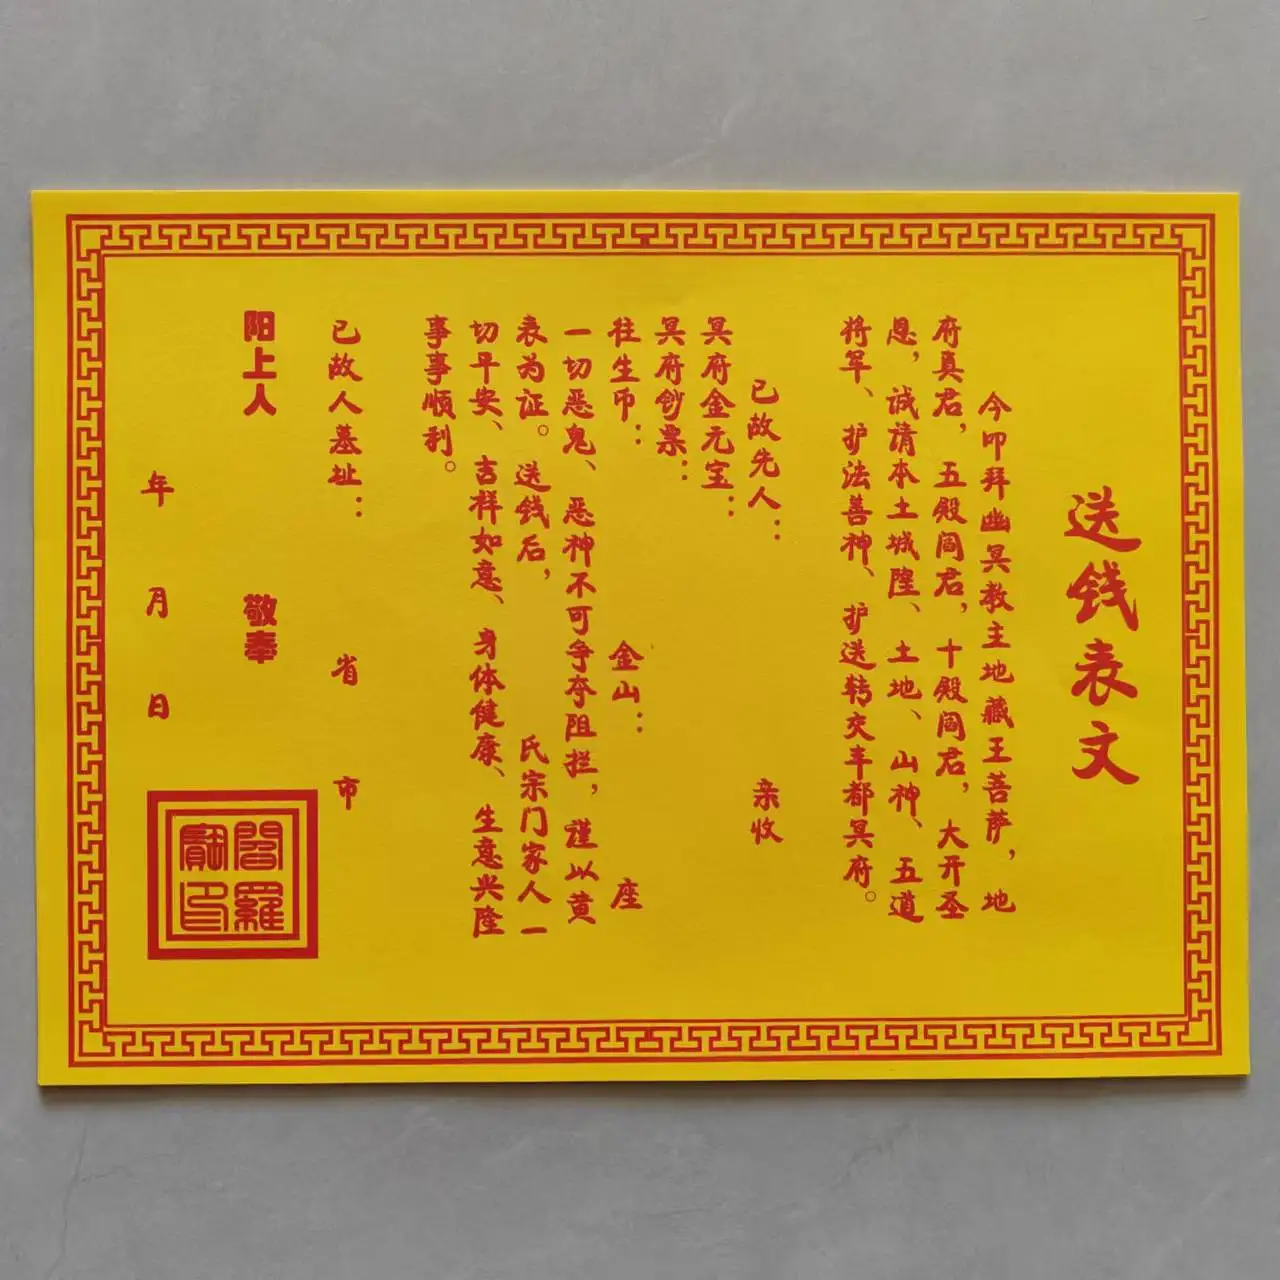 送钱表文
今叩拜幽冥教主地藏王菩萨，地
府真君，五殿阎君，十殿阎君，大开圣
恩，诚请本土城隍、土地、山神、五道
将军、护法善神、护送转交丰都冥府。
已故先人： 亲收
冥府金元宝：
冥府钞票：
往生币： 金山： 座
一切恶鬼、恶神不可争夺阻拦，谨以黄
表为证。送钱后， 氏宗门家人一
切平安、吉祥如意、身体健康、生意兴隆
事事顺利。
已故人墓址： 省 市
阳上人 敬奉
年 月 日
閻羅寶印